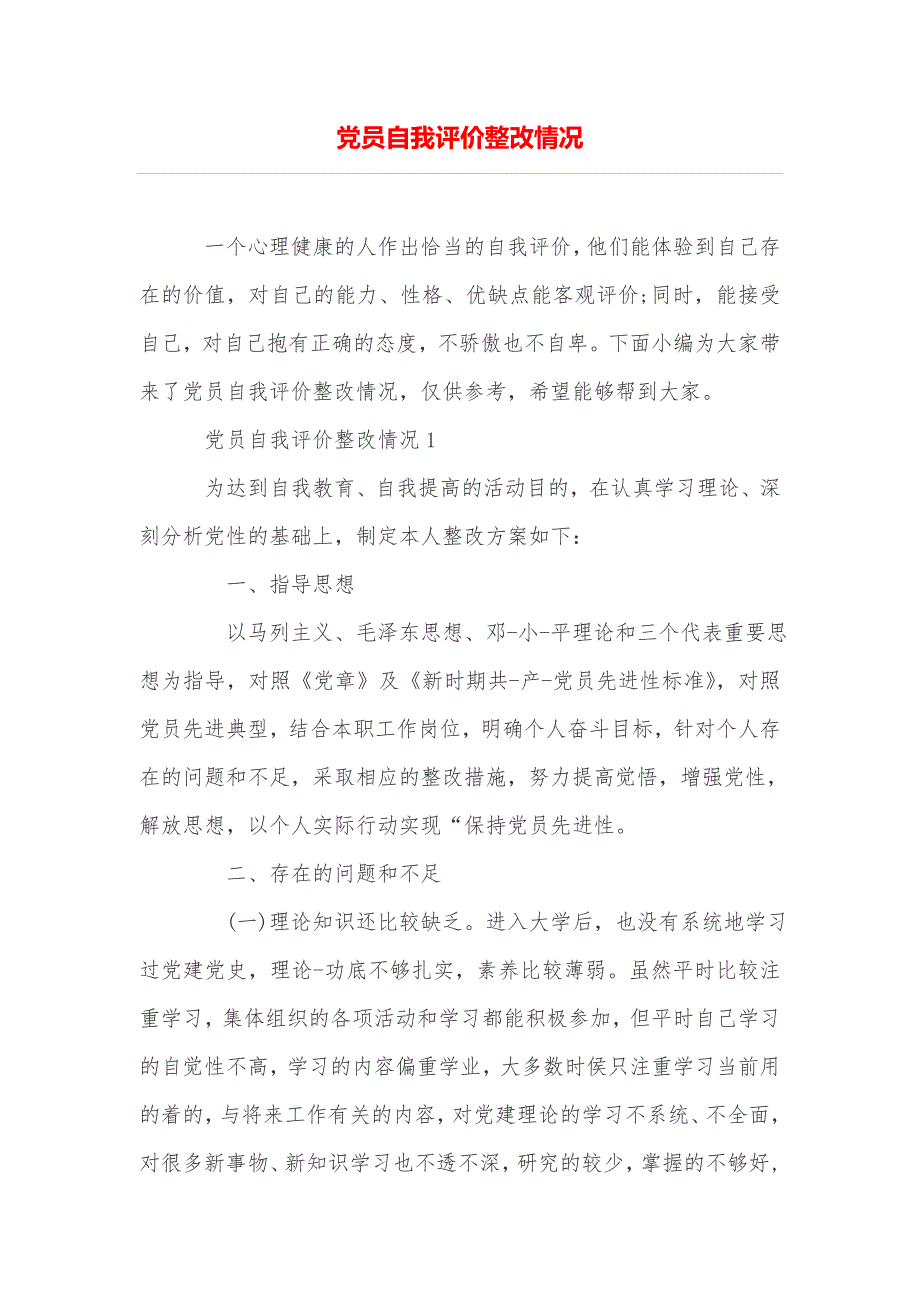 党员自我评价整改情况
一个心理健康的人作出恰当的自我评价,他们能体验到自己存
在的价值，对自己的能力、性格、优缺点能客观评价;同时，能接受
自己，对自己抱有正确的态度，不骄傲也不自卑。下面小编为大家带
来了党员自我评价整改情况，仅供参考，希望能够帮到大家。
党员自我评价整改情况 1
为达到自我教育、自我提高的活动目的，在认真学习理论、深
刻分析党性的基础上，制定本人整改方案如下：
一、指导思想
以马列主义、毛泽东思想、邓-小-平理论和三个代表重要思
想为指导，对照《党章》及《新时期共-产-党员先进性标准》，对照
党员先进典型，结合本职工作岗位，明确个人奋斗目标，针对个人存
在的问题和不足，采取相应的整改措施，努力提高觉悟，增强党性，
解放思想，以个人实际行动实现“保持党员先进性。
二、存在的问题和不足
(一)理论知识还比较缺乏。进入大学后，也没有系统地学习
过党建党史，理论-功底不够扎实，素养比较薄弱。虽然平时比较注
重学习，集体组织的各项活动和学习都能积极参加，但平时自己学习
的自觉性不高，学习的内容偏重学业，大多数时侯只注重学习当前用
的着的，与将来工作有关的内容，对党建理论的学习不系统、不全面，
对很多新事物、新知识学习也不透不深，研究的较少，掌握的不够好，